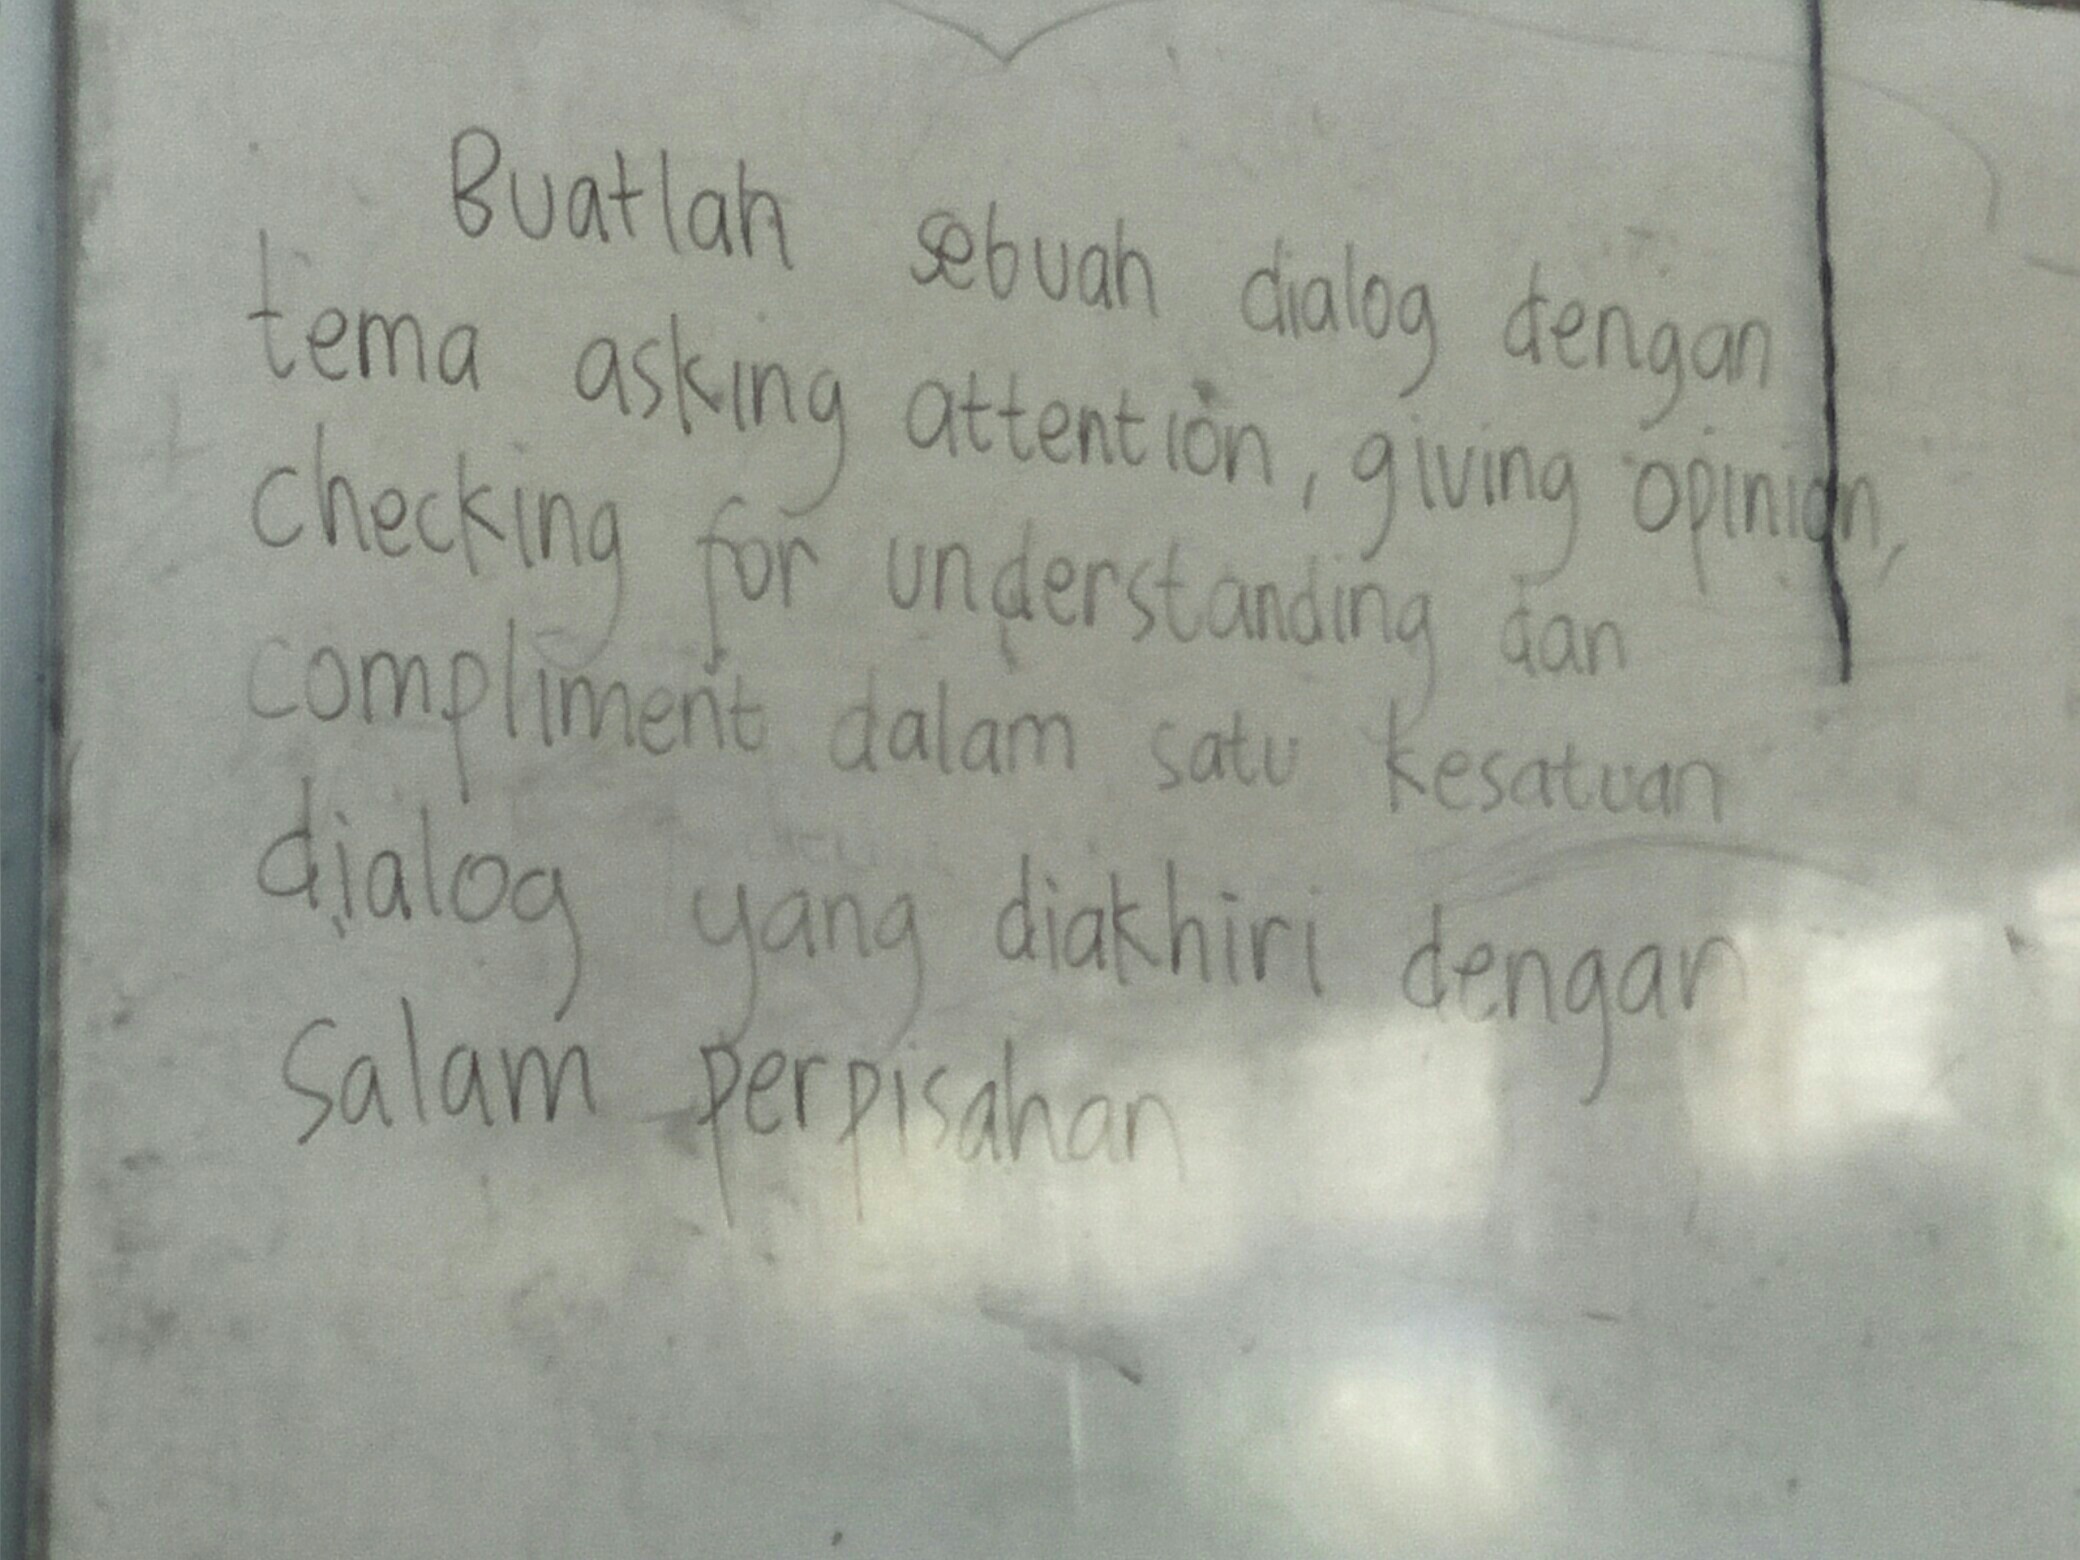 Buatlah sebuah dialog dengan
tema asking attention, giving opinion,
checking for understanding dan
compliment dalam satu kesatuan
dialog yang diakhiri dengan
Salam perpisahan